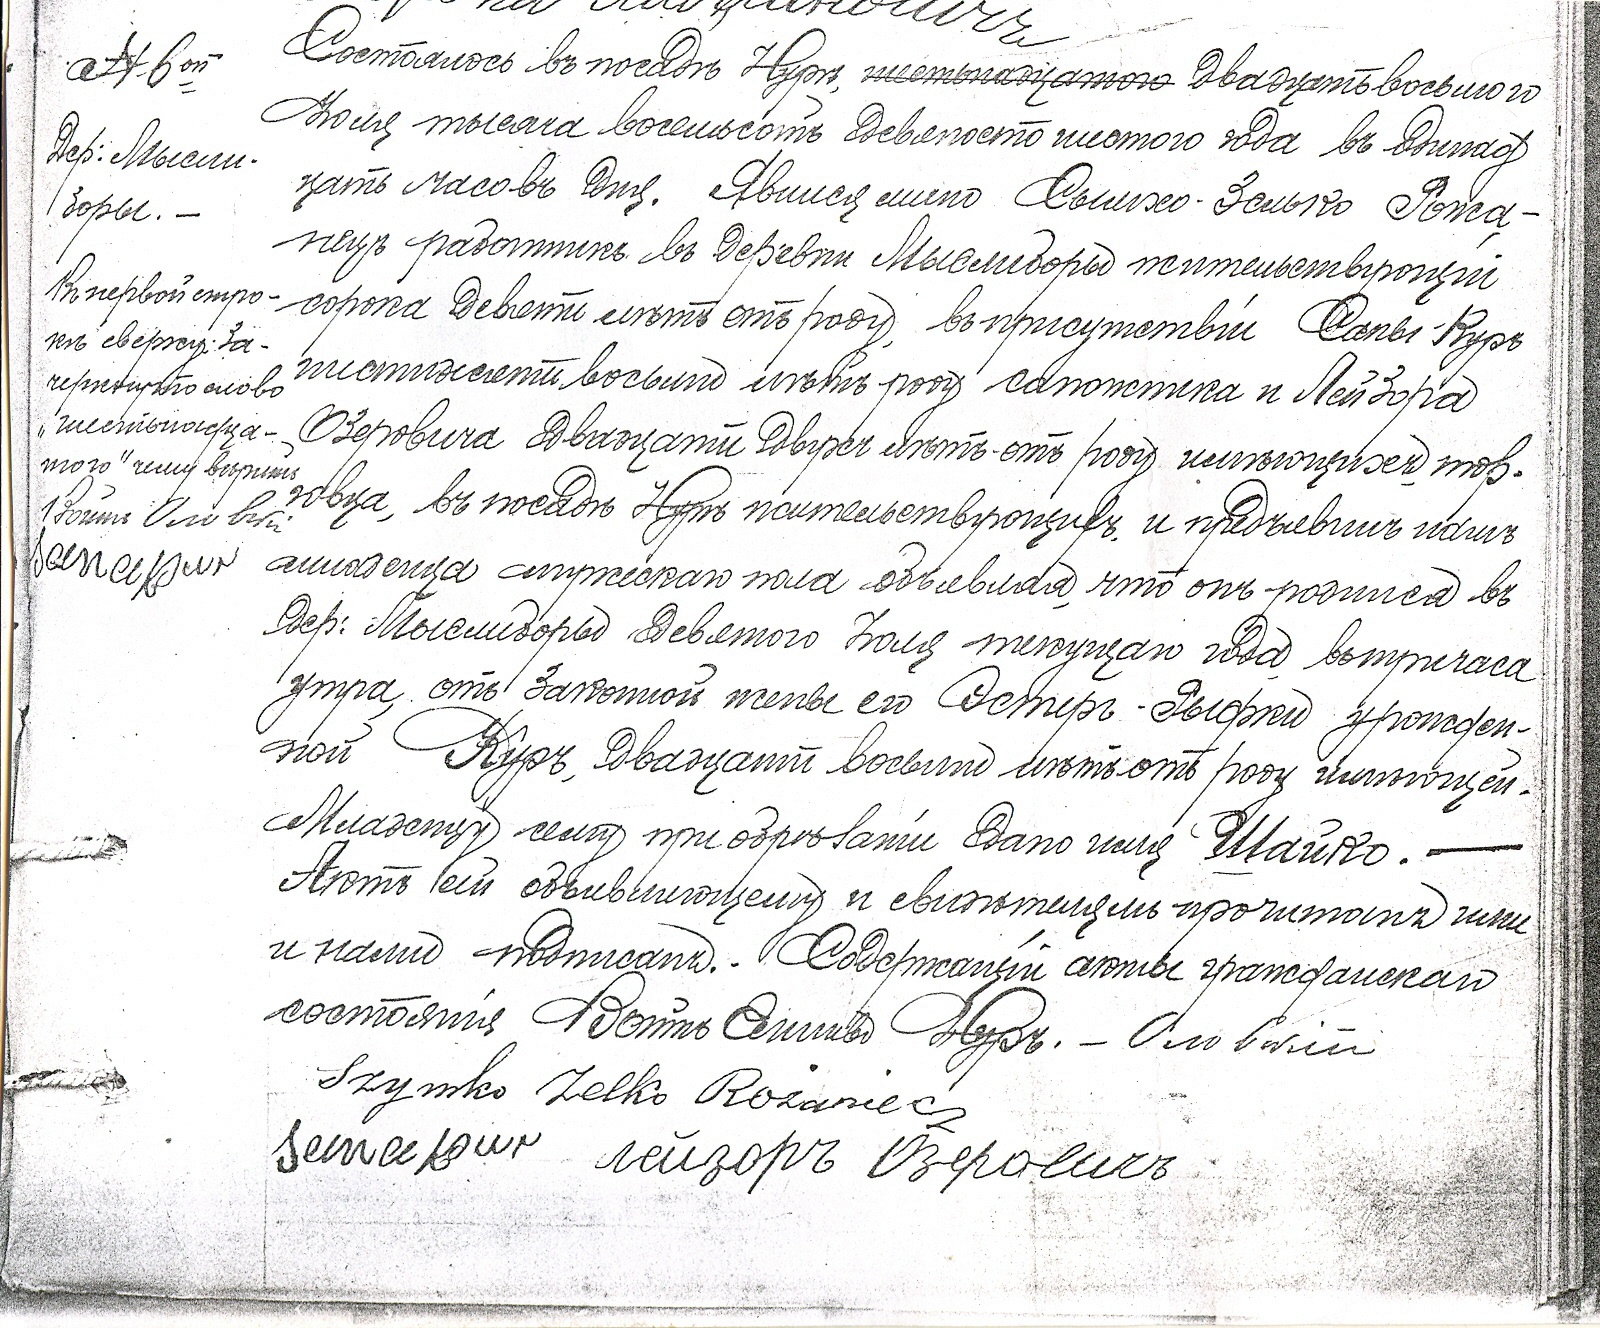 Состоялось въ посадѣ Нурѣ, шестьнадцатого Двадцать восьмого
Іюля тысяча восемьсотъ девяносто шестого года въ Двѣнад
цать часовъ дня. Явился лично Сымхо-Зелько Рожа-
нецъ работникъ въ деревни Мыслиборы жительствующій
сорока девяти лѣтъ отъ роду, въ присутствіи Сапы Куръ
шестидесяти восьми лѣтъ роду сапожника и Лейзора
Озеровича двадцати двухъ лѣтъ отъ роду имѣющихъ, тор-
говца, въ посадѣ Нурѣ жительствующихъ, и предъявилъ намъ
младенца мужескаго пола объявляя, что онъ родился въ
дер: Мыслиборы девятого Іюля текущаго года въ три часа
утра, отъ законной жены его Эстеръ-Рыфки урожден-
ной Куръ, двадцати восьми лѣтъ отъ роду имѣющей.
Младенцу сему при обрѣзаніи дано имя Шайко. —
Актъ сей объявляющему и свидѣтелямъ прочитанъ ими
и нами подписанъ. - Содержащій акты гражданскаго
состоянія Войтъ Гмины Нуръ. —
Szymko Zelko Rożaniec
лейзоръ Озеровичъ
№ 6ой
Дер: Мысли-
боры. —
Въ первой стро-
кѣ сверху за-
черкнуто слово
„шестьнадца-
того" чему вѣримъ
Войтъ